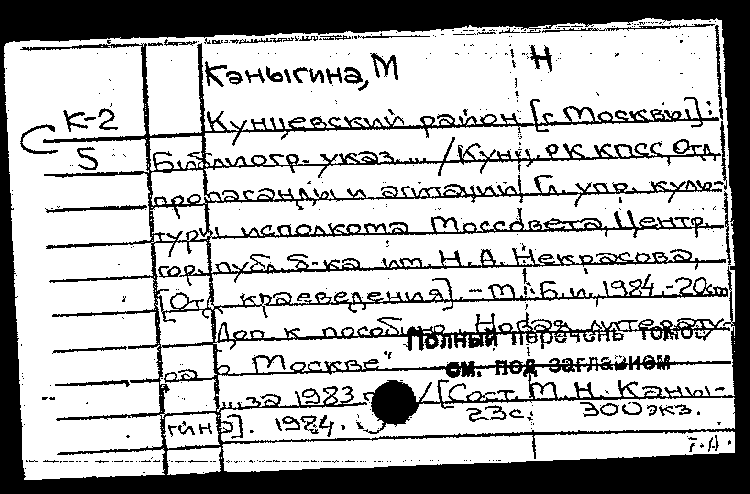 Каныгина, М Н
К-2
5
Кунцевский район [г. Москвы]:
Библиогр. указ... / Кунц. РК КПСС, Отд.
пропаганды и агитации, Гл. упр. куль-
туры исполкома Моссовета, Центр.
гор. публ. б-ка им. Н. А. Некрасова,
[Отд. краеведения]. - М.: Б. и., 1984. - 20см
Доп. к пособию „Новая литерату-
ра о Москве"
Полный перечень томов
см. под заглавием
... за 1983 г. / [Сост. М. Н. Каны-
гина]. 1984. 23с. 300экз.